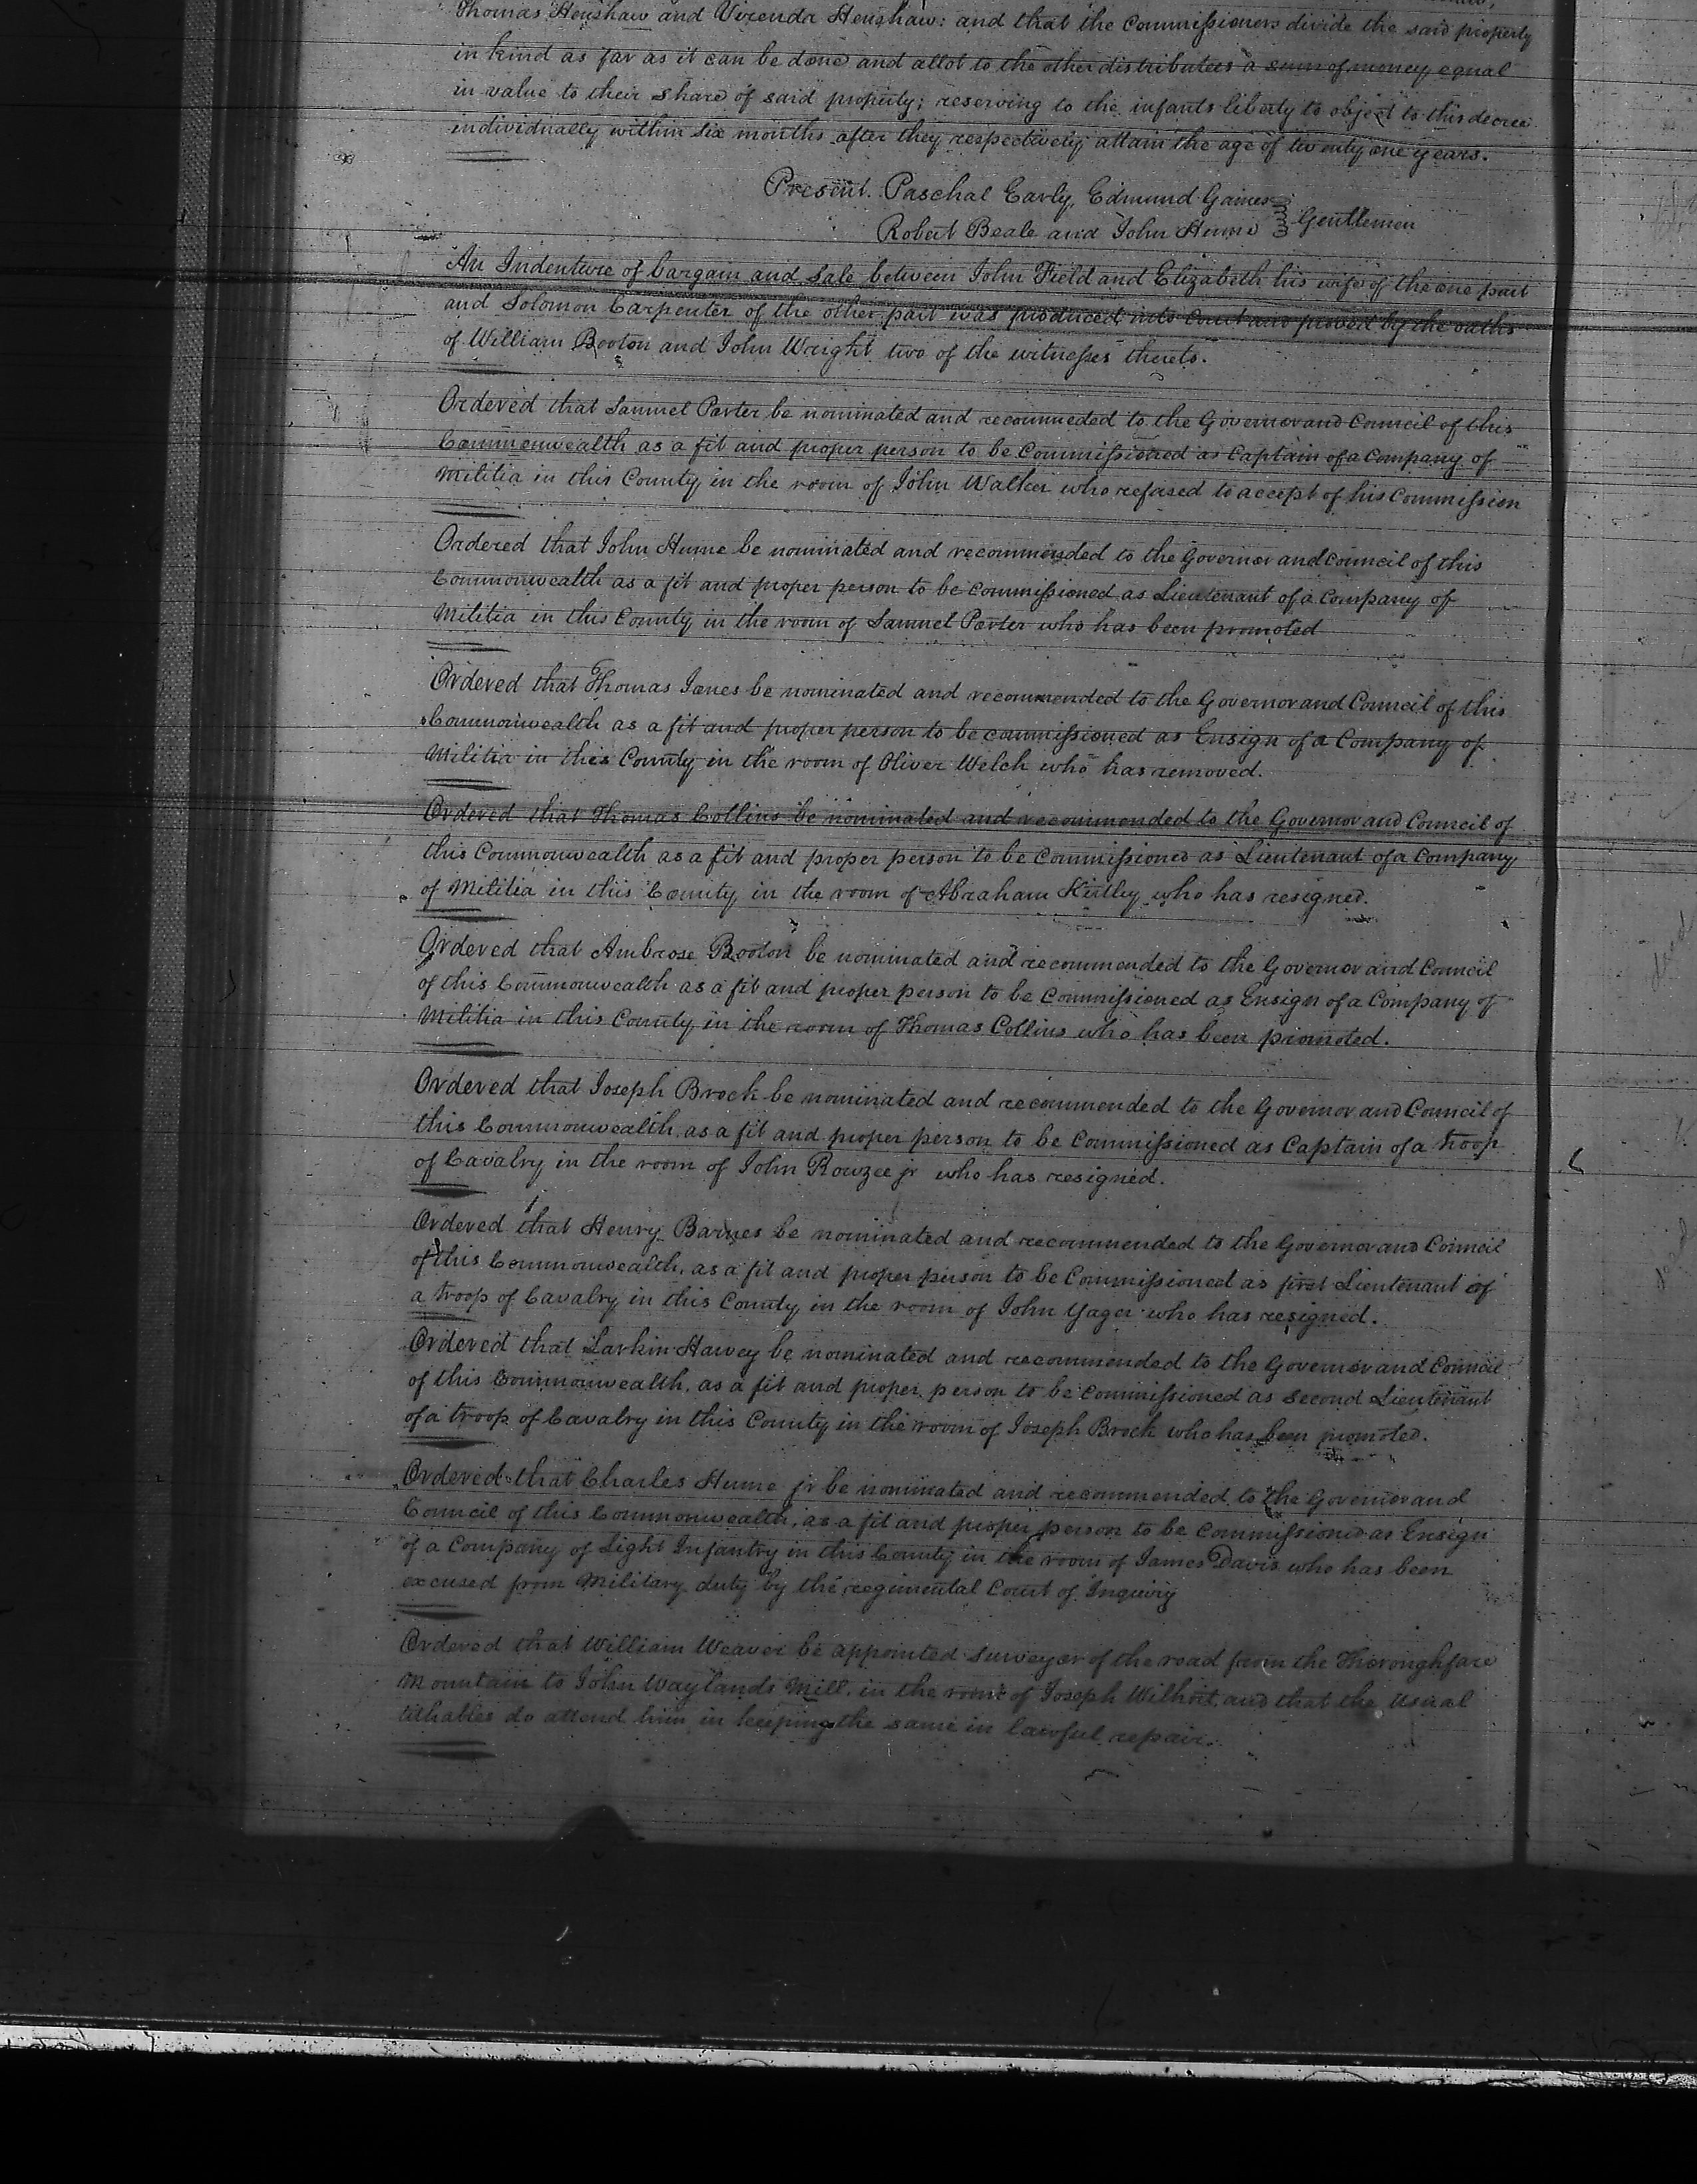 Thomas Henshaw and Virenda Henshaw: and that the Commissioners divide the said property
in kind as far as it can be done and allot to the other distributees a sum of money equal
in value to their share of said property; reserving to the infants liberty to object to this decree
individually within six months after they respectively attain the age of twenty one years.
Present. Paschal Early, Edmund Gaines
Robert Beale and John Hume Gentlemen
An Indenture of bargain and Sale between John Field and Elizabeth his wife of the one part
and Solomon Carpenter of the other part was produced into Court and proved by the oaths
of William Booton and John Wright two of the witnesses thereto.
Ordered that Samuel Porter be nominated and recommeded to the Governor and Council of this
Commonwealth as a fit and proper person to be Commissioned as Captain of a Company of
Militia in this County in the room of John Walker who refused to accept of his Commission
Ordered that John Hume be nominated and recommended to the Governor and Council of this
Commonwealth as a fit and proper person to be Commissioned as Lieutenant of a Company of
Militia in this County in the room of Samuel Porter who has been promoted
Ordered that Thomas Jones be nominated and recommended to the Governor and Council of this
Commonwealth as a fit and proper person to be commissioned as Ensign of a Company of
Militia in this County in the room of Oliver Welch who has removed.
Ordered that Thomas Collins be nominated and recommended to the Governor and Council of
this Commonwealth as a fit and proper person to be Commissioned as Lieutenant of a Company
of Militia in this County in the room of Abraham Kirtley who has resigned.
Ordered that Ambrose Booton be nominated and recommended to the Governor and Council
of this Commonwealth as a fit and proper person to be Commissioned as Ensign of a Company of
Militia in this County in the room of Thomas Collins who has been promoted.
Ordered that Joseph Brock be nominated and recommended to the Governor and Council of
this Commonwealth, as a fit and proper person to be Commissioned as Captain of a troop
of Cavalry in the room of John Rowzee jr who has resigned.
Ordered that Henry Barnes be nominated and recommended to the Governor and Council
of this Commonwealth, as a fit and proper person to be Commissioned as first Lieutenant of
a troop of Cavalry in this County in the room of John Yager who has resigned.
Ordered that Larkin Harvey be nominated and recommended to the Governor and Council
of this Commonwealth, as a fit and proper person to be commissioned as second Lieutenant
of a troop of Cavalry in this County in the room of Joseph Brock who has been promoted.
Ordered that Charles Hume jr be nominated and recommended to the Governor and
Council of this Commonwealth, as a fit and proper person to be Commissioned as Ensign
of a Company of Light Infantry in this County in the room of James Davis who has been
excused from Military duty by the regimental Court of Inquiry
Ordered that William Weaver be appointed surveyor of the road from the Thoroughfare
Mountain to John Waylands Mill. in the room of Joseph Wilhoit, and that the usual
tithables do attend him in keeping the same in lawful repair.